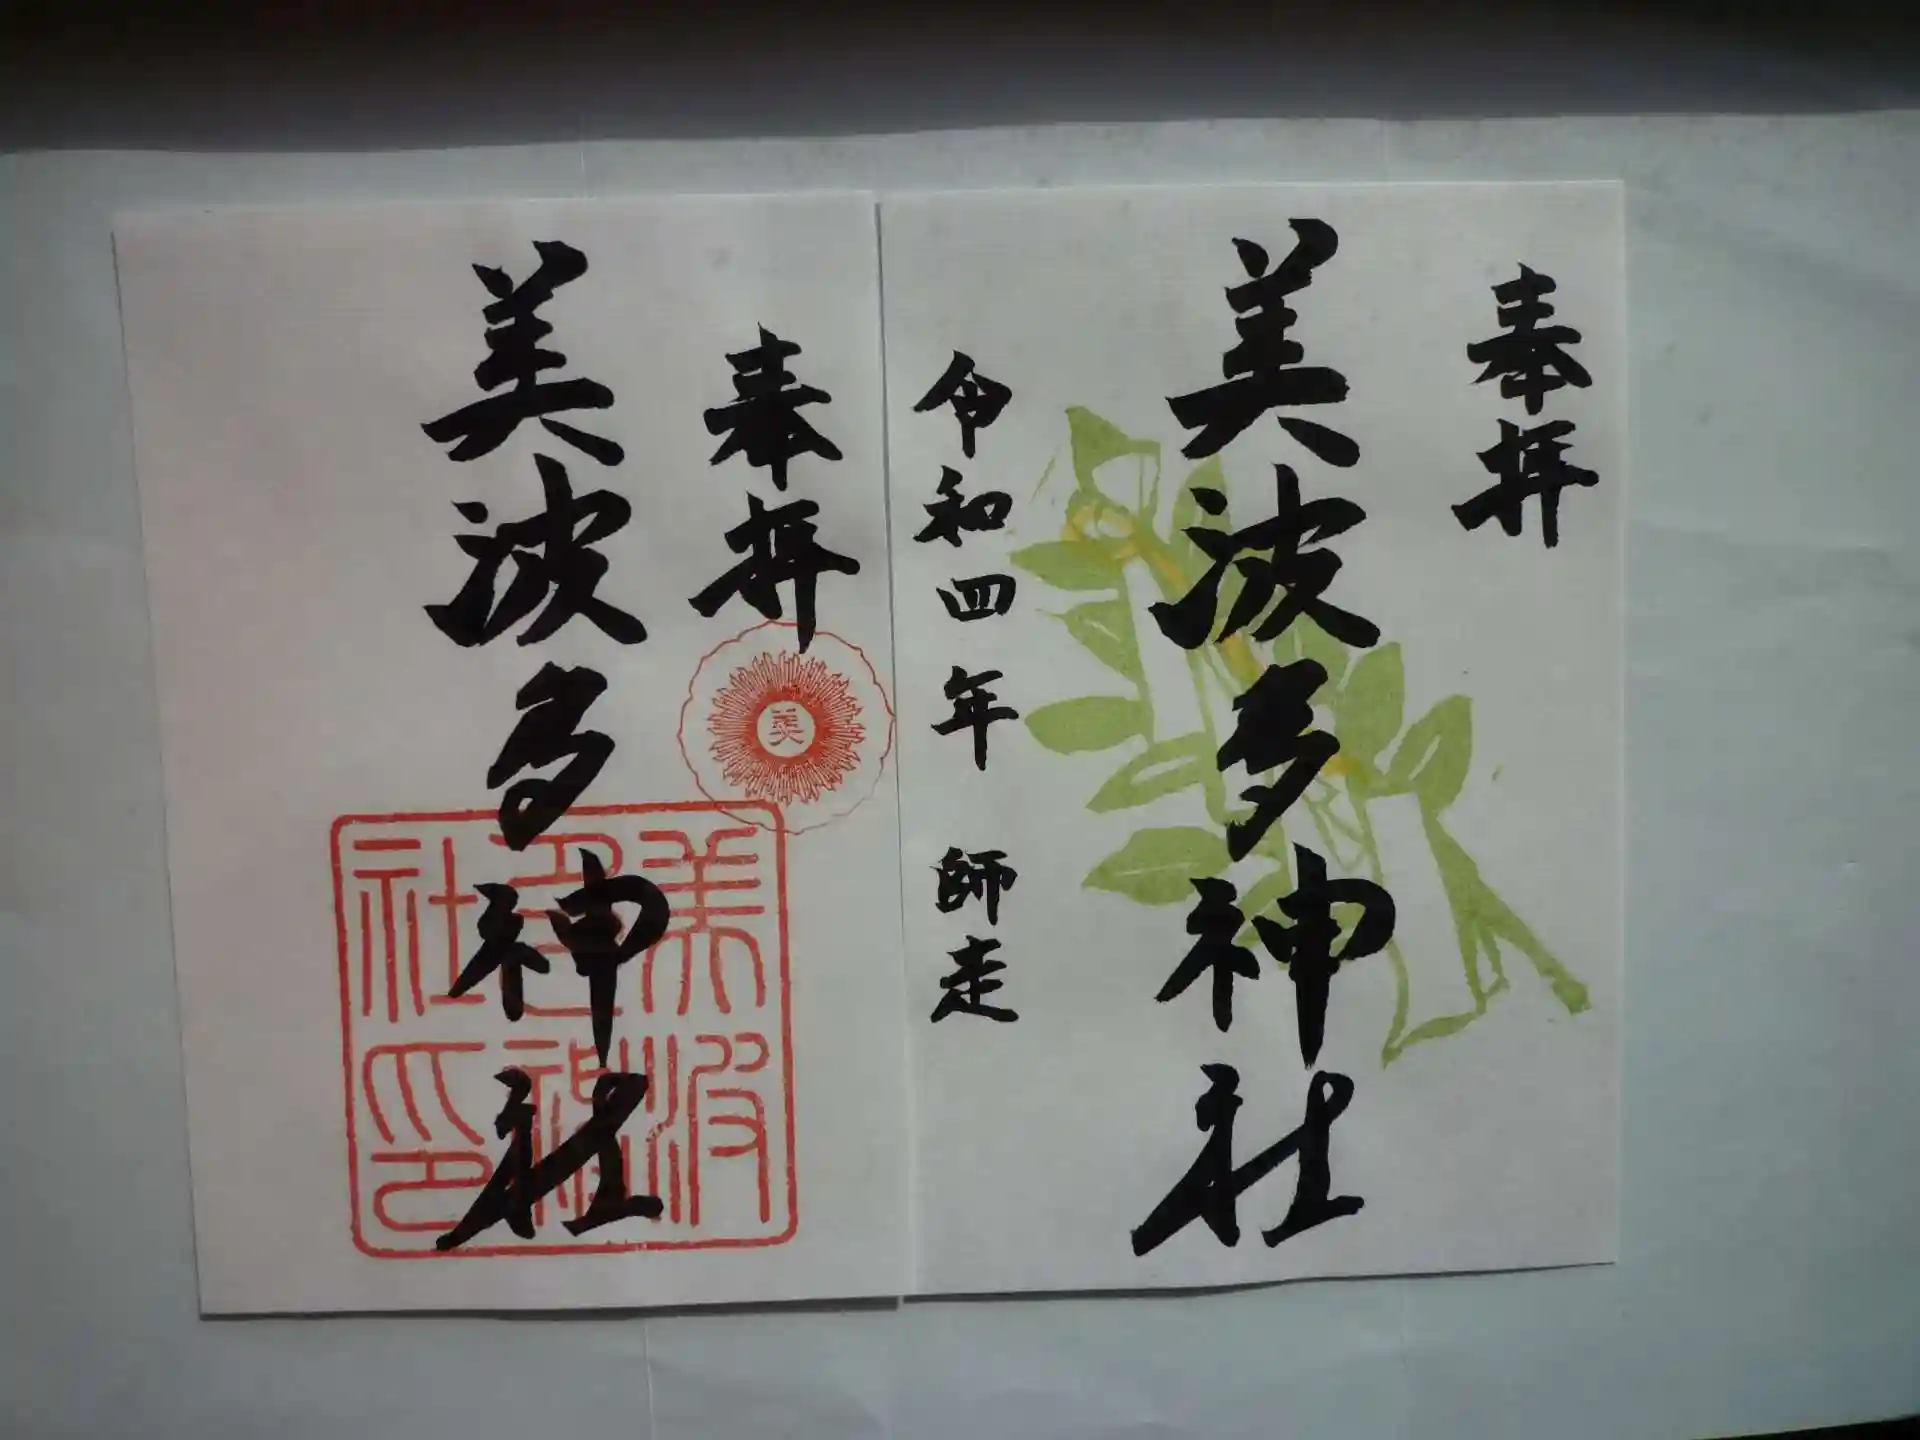 奉拝
美波多神社
令和四年 師走
奉拝
美波多神社
美
美波多神社印